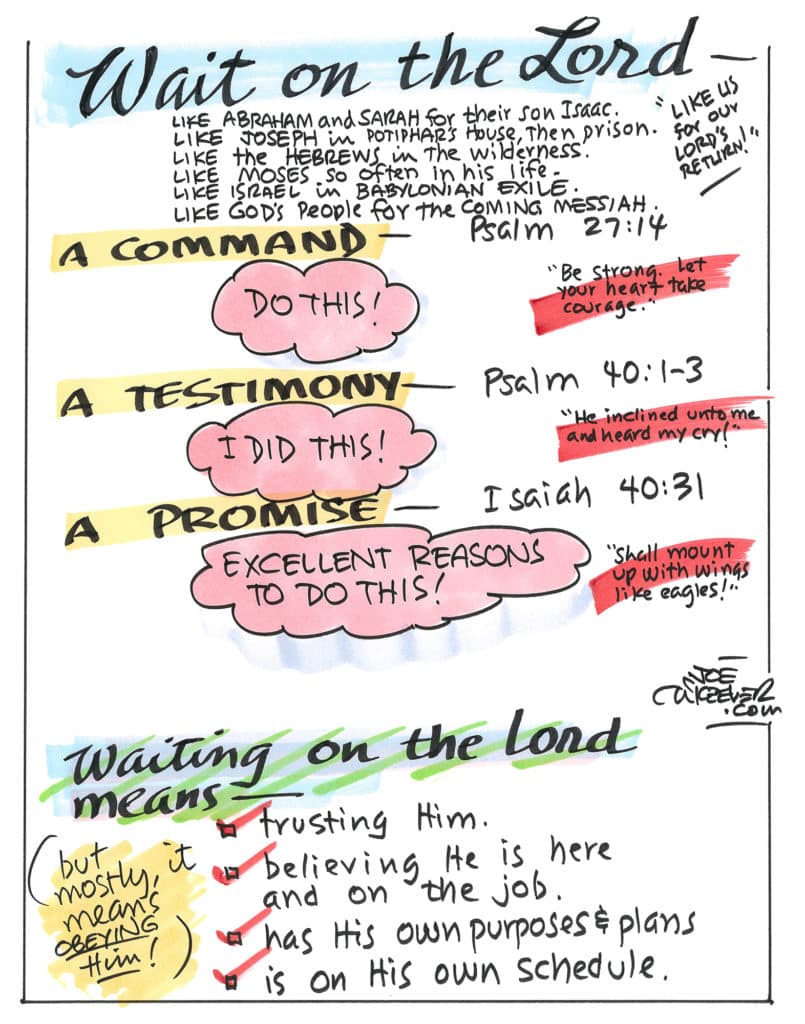 Wait on the Lord —
LIKE ABRAHAM and SARAH for their son Isaac.
LIKE JOSEPH in POTIPHAR'S House, Then prison.
LIKE the HEBREWS in The wilderness.
LIKE MOSES so often in his life -
LIKE ISRAEL in BABYLONIAN EXILE.
LIKE GOD'S People for the COMING MESSIAH.
"LIKE US
for our
LORD'S
RETURN!"
A COMMAND — Psalm 27:14
DO THIS!
"Be strong. Let
your heart take
courage."
A TESTIMONY — Psalm 40:1-3
I DID THIS!
"He inclined unto me
and heard my cry!"
A PROMISE — Isaiah 40:31
EXCELLENT REASONS
TO DO THIS!
"shall mount
up with wings
like eagles!"
JOE
McKEEVER
.com
Waiting on the Lord
means —
trusting Him.
believing He is here
and on the job.
has His own purposes & plans
is on His own schedule.
(but
mostly, it
means
OBEYING
Him!)